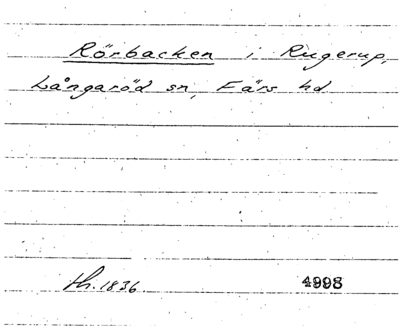 Rörbacken i Rugerup,
Långaröd sn, Färs hd
th. 1836. 4998